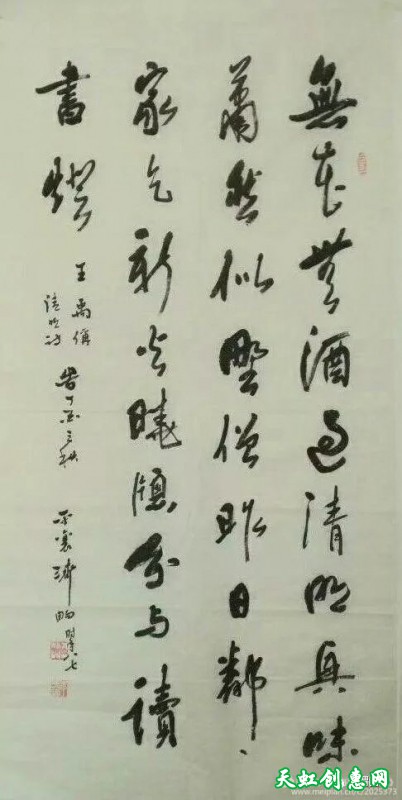 無花無酒過清明興味
蕭然似野僧昨日鄰
家乞新火曉窗分與讀
書燈
王禹偁
清明詩
丁酉之秋
八七
天虹创惠网
www.meipian.cn/c/22025373